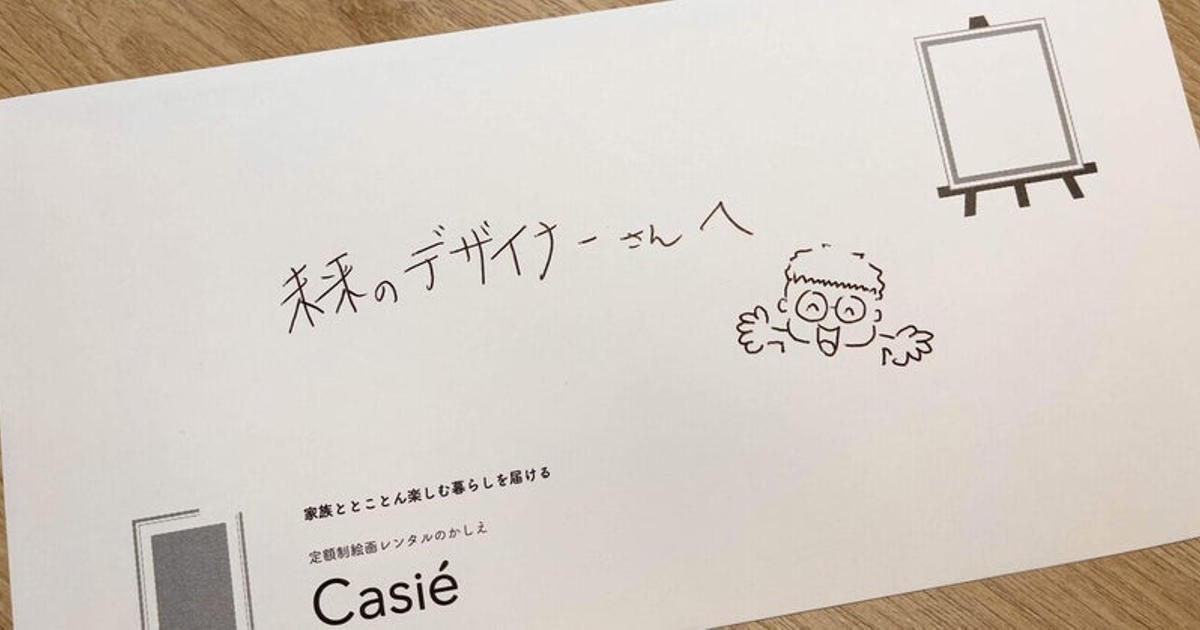 未来のデザイナーさんへ
家族ととことん楽しむ暮らしを届ける
定額制絵画レンタルのかしえ
Casié